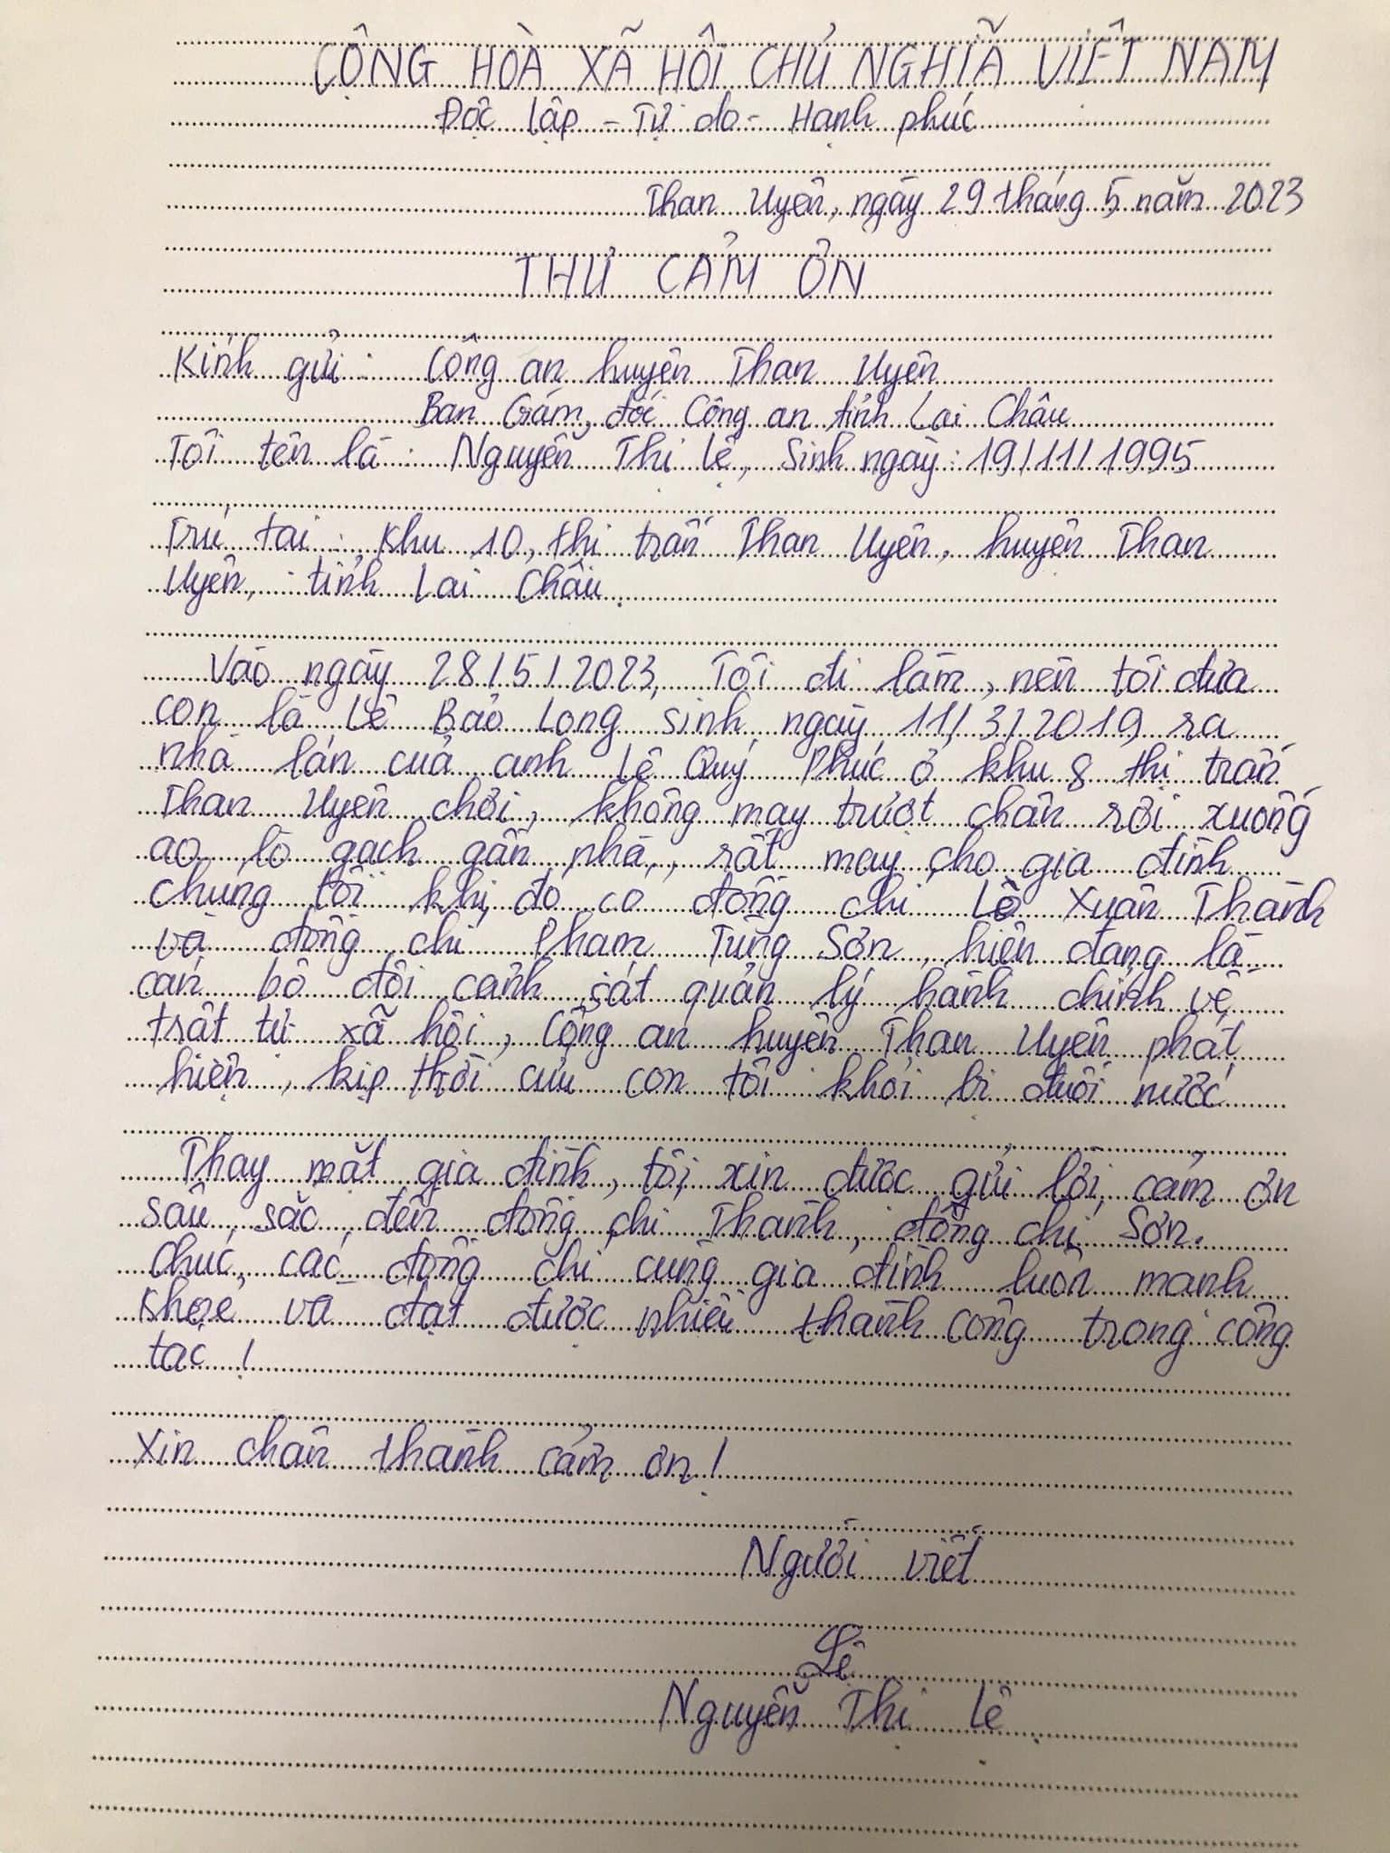 CỘNG HÒA XÃ HỘI CHỦ NGHĨA VIỆT NAM
Độc lập - Tự do - Hạnh phúc
Than Uyên, ngày 29 tháng 5 năm 2023
THƯ CẢM ƠN
Kính gửi : Công an huyện Than Uyên
Ban Giám đốc Công an tỉnh Lai Châu
Tôi tên là : Nguyễn Thị Lệ, Sinh ngày : 19/11/1995
Trú tại : Khu 10, thị trấn Than Uyên, huyện Than
Uyên, tỉnh Lai Châu.
Vào ngày 28/5/2023, Tôi đi làm, nên tôi đưa
con là Lê Bảo Long sinh ngày 11/3/2019 ra
nhà lán của anh Lê Quý Phúc ở khu 8 thị trấn
Than Uyên chơi, không may trượt chân rơi xuống
ao lò gạch gần nhà, rất may cho gia đình
chúng tôi khi đó có đồng chí Lò Xuân Thành
và đồng chí Phạm Tùng Sơn, hiện đang là
cán bộ đội cảnh sát quản lý hành chính về
trật tự xã hội, Công an huyện Than Uyên phát
hiện, kịp thời cứu con tôi khỏi bị đuối nước
Thay mặt gia đình, tôi xin được gửi lời cảm ơn
sâu sắc đến đồng chí Thành, đồng chí Sơn.
Chúc các đồng chí cùng gia đình luôn mạnh
khoẻ và đạt được nhiều thành công trong công
tác !
Xin chân thành cảm ơn !
Người viết
Lệ
Nguyễn Thị Lệ